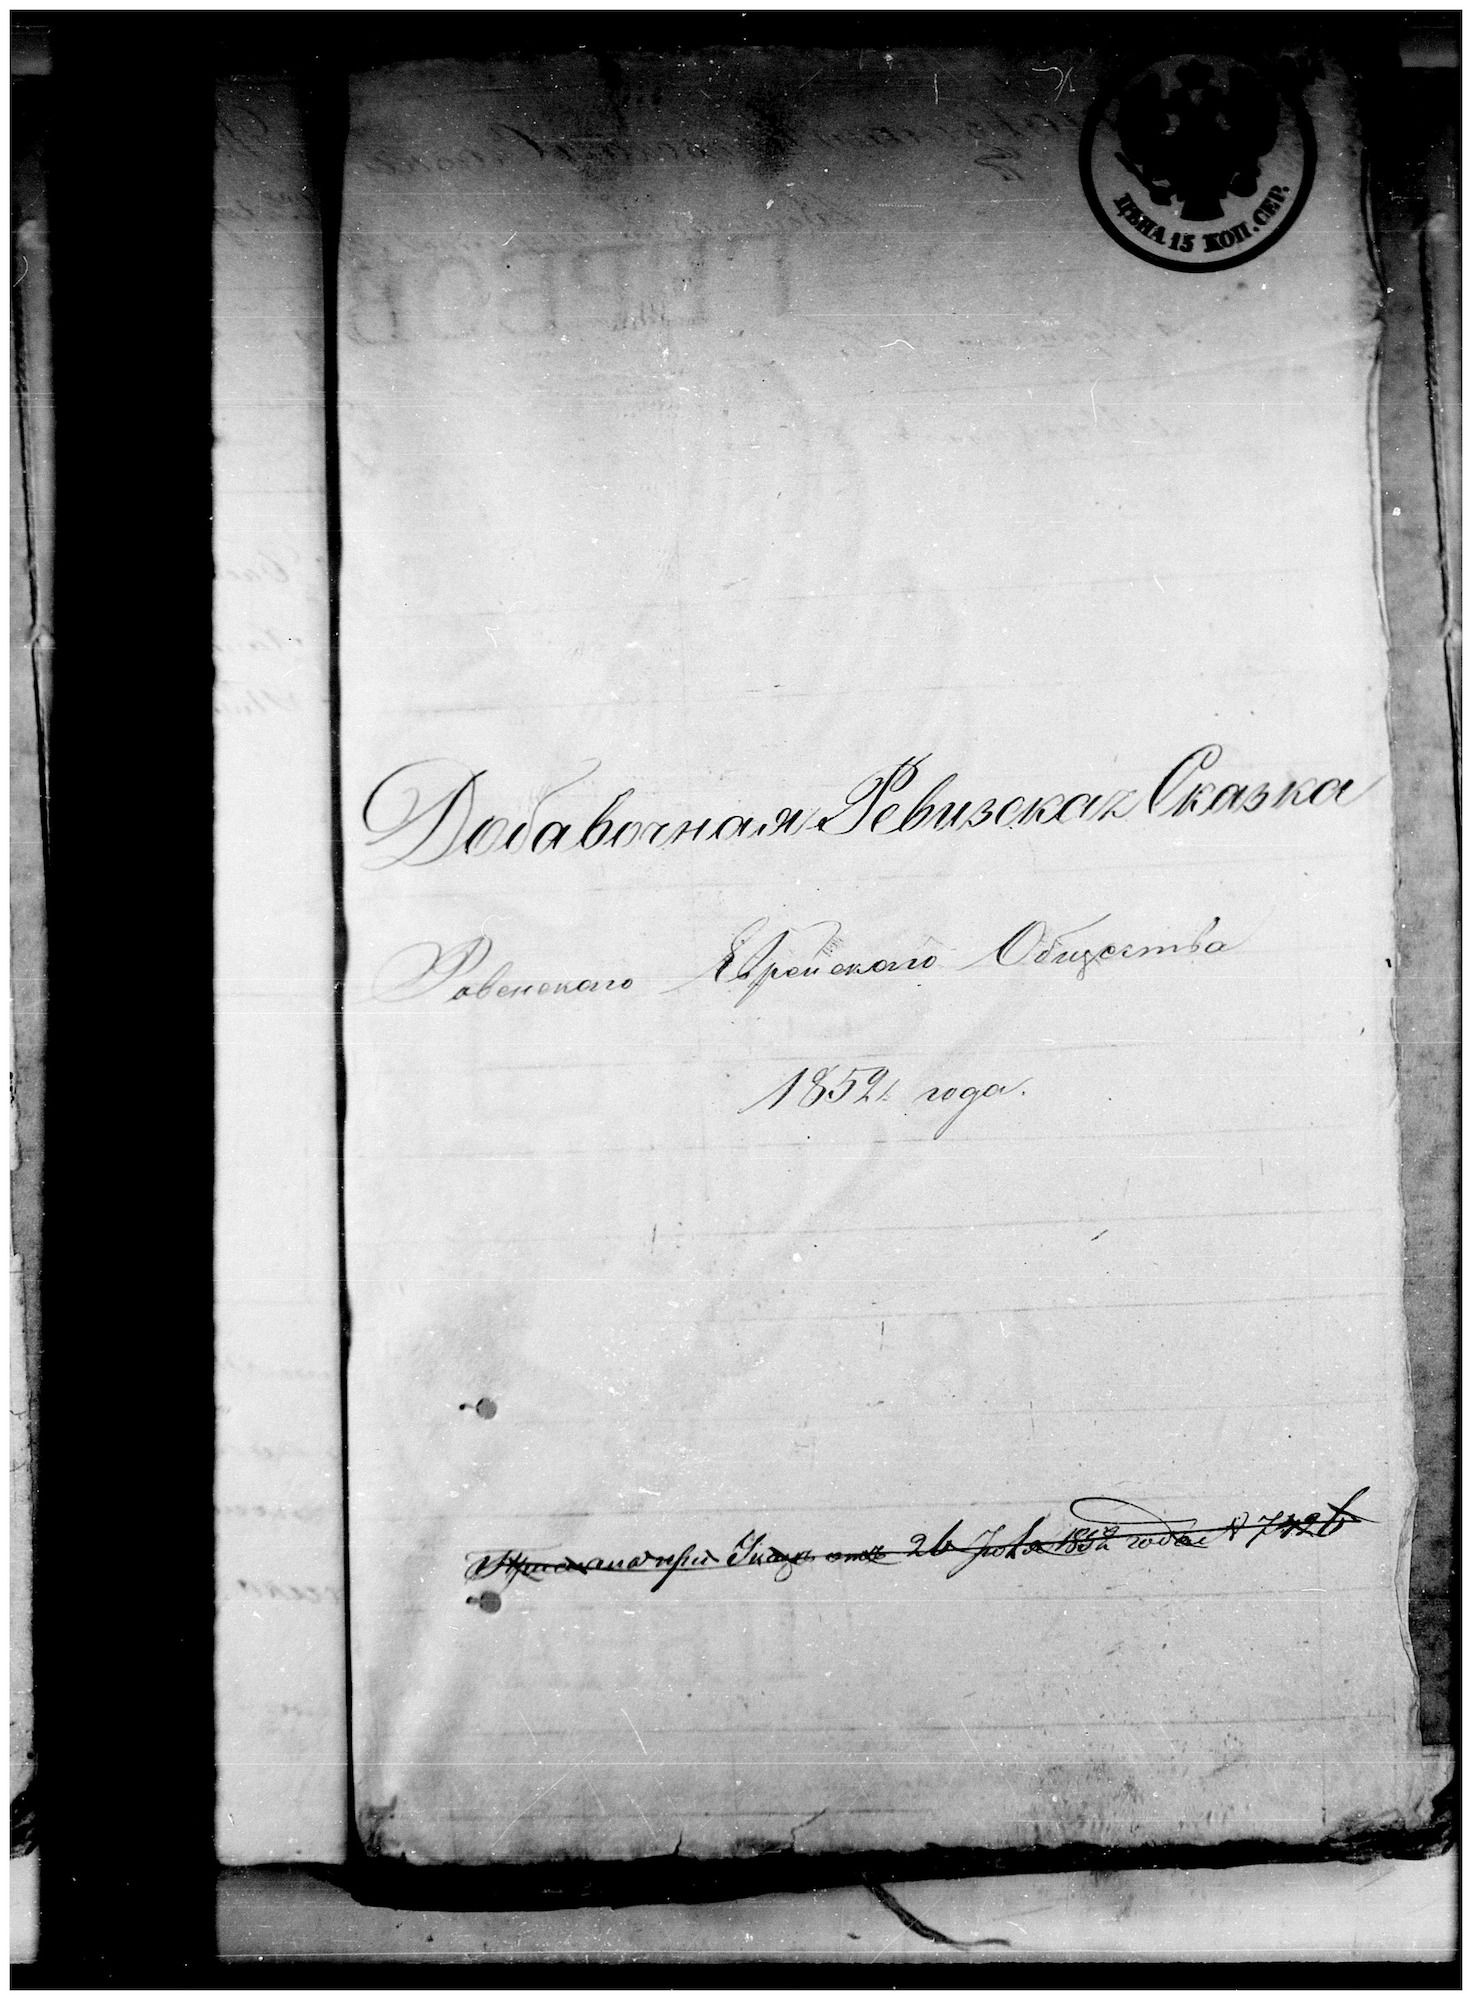 ЦѢНА 15 КОП. СЕР.
Добавочная Ревизская Сказка
Ровенского Еврейского Общества
1852 года.
при Указе отъ 26 Июля 1852 года N 7426